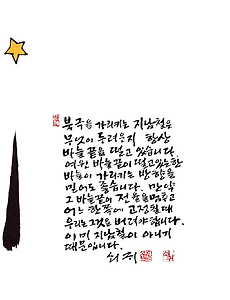 북극을 가리키는 지남철은
무엇이 두려운지 항상
바늘 끝을 떨고 있습니다.
여윈 바늘 끝이 떨고 있는 한
바늘이 가리키는 방향을
믿어도 좋습니다. 만약
그 바늘 끝이 전율을 멈추고
어느 한 쪽에 고정될 때
우리는 그것을 버려야 합니다.
이미 지남철이 아니기
때문입니다.
쇠귀